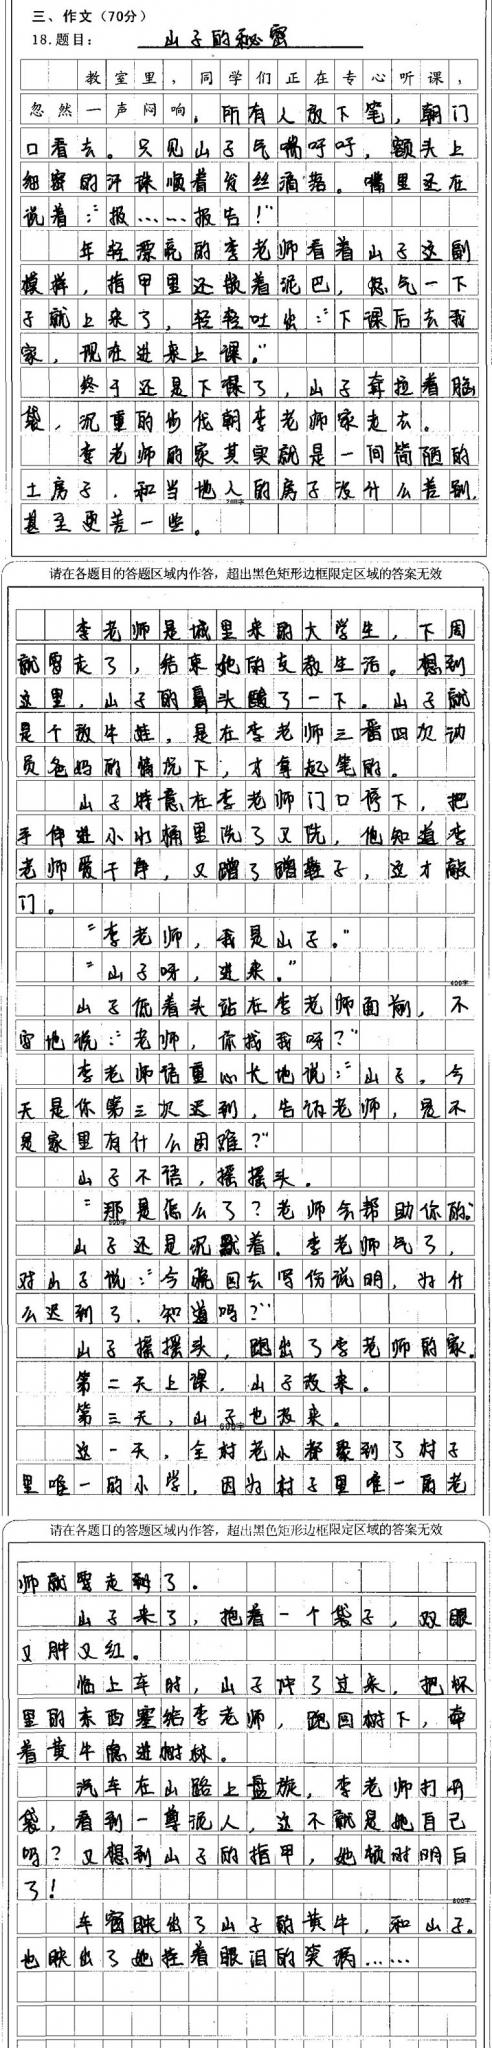 三、作文（70分）
18.题目： 山子的秘密
教室里，同学们正在专心听课，
忽然一声闷响，所有人放下笔，朝门
口看去。只见山子气喘吁吁，额头上
细密的汗珠顺着发丝滴落。嘴里还在
说着：“报……报告！”
年轻漂亮的李老师看着山子这副
模样，指甲里还嵌着泥巴，怒气一下
子就上来了，轻轻吐出：“下课后去我
家，现在进来上课。”
终于还是下课了，山子耷拉着脑
袋，沉重的步伐朝李老师家走去。
李老师的家其实就是一间简陋的
土房子，和当地人的房子没什么差别，
200字
甚至更差一些。
请在各题目的答题区域内作答，超出黑色矩形边框限定区域的答案无效
李老师是城里来的大学生，下周
就要走了，结束她的支教生活。想到
这里，山子的鼻头酸了一下。山子就
是个放牛娃，是在李老师三番四次动
员爸妈的情况下，才拿起笔的。
山子特意在李老师门口停下，把
手伸进小水桶里洗了又洗，他知道李
老师爱干净，又蹭了蹭鞋子，这才敲
门。
“李老师，我是山子。”
“山子呀，进来。”
400字
山子低着头站在李老师面前，不
安地说：“老师，你找我呀？”
李老师语重心长地说：“山子，今
天是你第三次迟到，告诉老师，是不
是家里有什么困难？”
山子不语，摇摇头。
“那是怎么了？老师会帮助你的。”
500字
山子还是沉默着。李老师气了，
对山子说：“今晚回去写份说明，为什
么迟到了，知道吗？”
山子摇摇头，跑出了李老师的家。
第二天上课，山子没来。
第三天，山子也没来。
600字
这一天，全村老小都聚到了村子
里唯一的小学，因为村子里唯一的老
请在各题目的答题区域内作答，超出黑色矩形边框限定区域的答案无效
师就要走了。
山子来了，抱着一个袋子，双眼
又肿又红。
临上车时，山子冲了过来，把怀
里的东西塞给李老师，跑回树下，牵
着黄牛隐进树林。
汽车在山路上盘旋，李老师打开
袋，看到一尊泥人，这不就是她自己
吗？又想到山子的指甲，她顿时明白
了！
800字
车窗映出了山子的黄牛，和山子。
也映出了她挂着眼泪的笑涡……